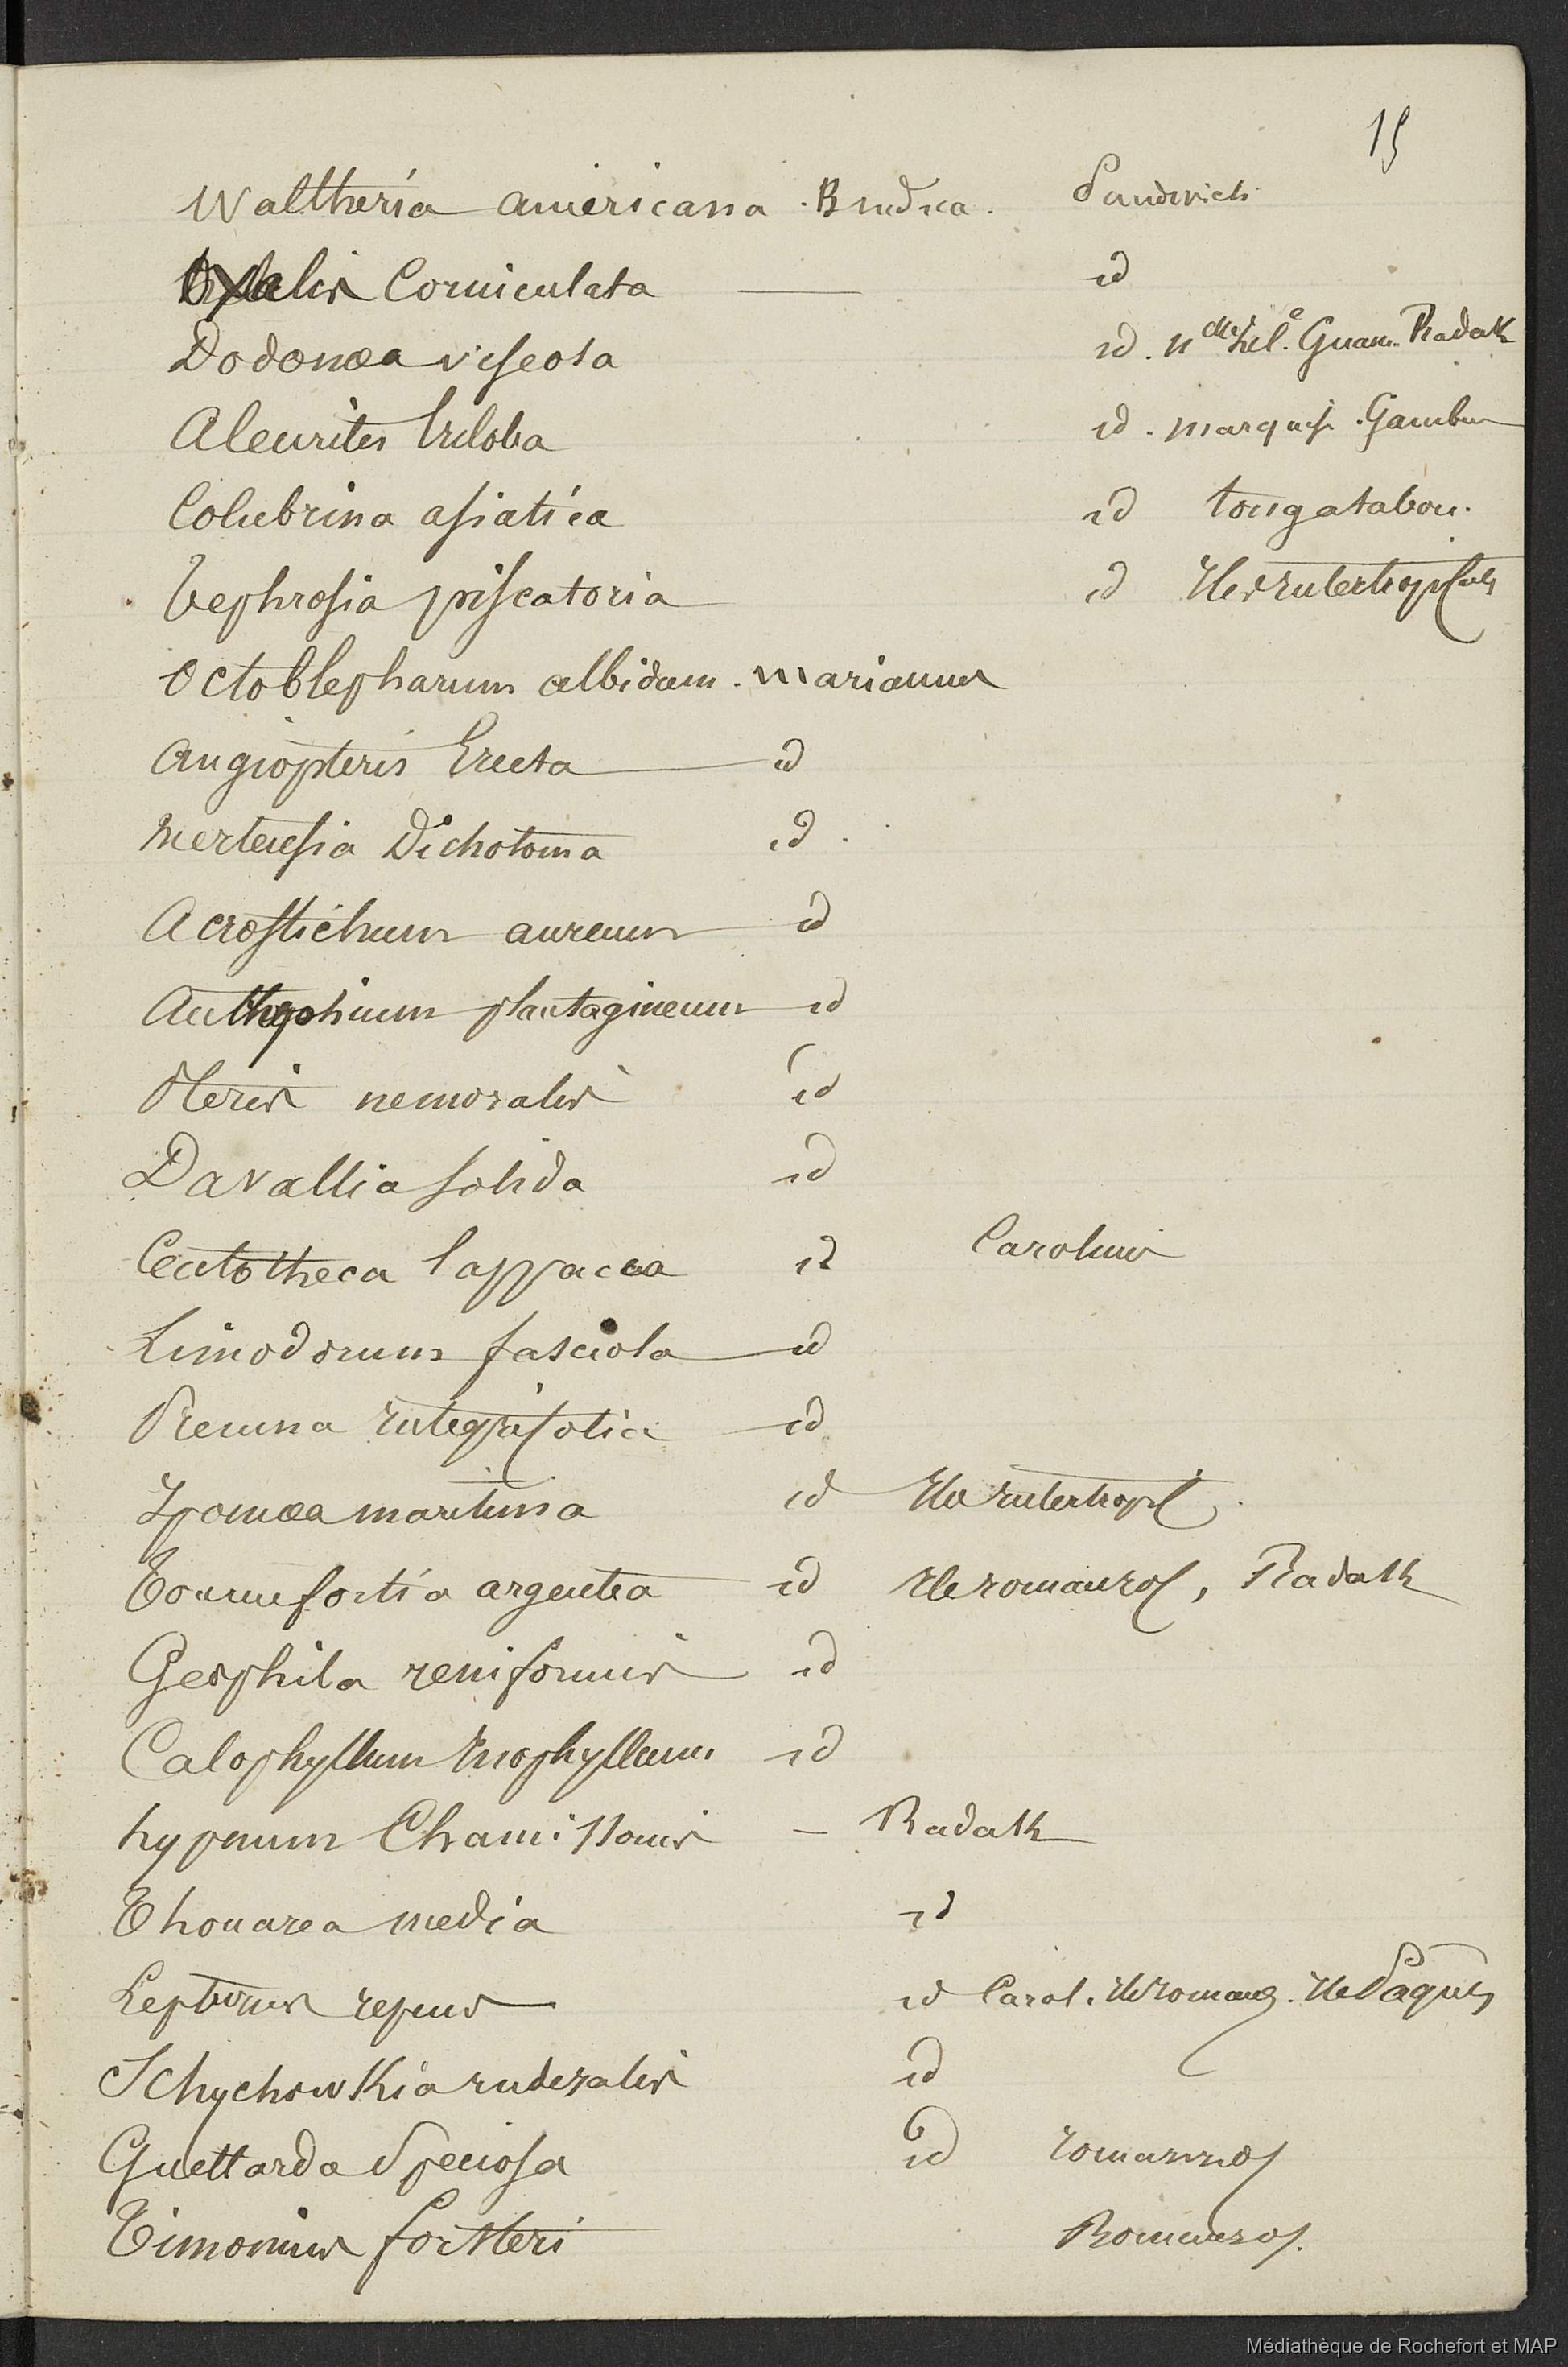 15
Waltheria americana . B indica . Sandwich
Oxalis Corniculata — id
Dodonœa viscosa id . nlle Zel. Guam. Radak
Aleurites triloba id . marquis . Gambier
Colubrina asiatica id tongatabou .
Tephrosia piscatoria id Iles intertropicales
Octoblepharum albidum . mariannes
Angiopteris Erecta id
Mertensia Dichotoma id .
Acrostichum aureum id
Anthrophium plantagineum id
Pteris nemoralis id
Davallia solida id
Centotheca lappacea id Carolines
Limodorum fasciola id
Premna integrifolia id
Ipomœa maritima id Iles intertropic
Tournefortia argentea id Ile romanzof , Radak
Geophila reniformis id
Calophyllum Inophyllum id
hypnum Chamissonis — Radak
Thouarea media id
Lepturus repens id Carol . Ile romanz . Ile Pâques
Schychowskia ruderalis id
Guettarda Speciosa id romanzof
Timonius forsteri Romanzof .
Médiathèque de Rochefort et MAP